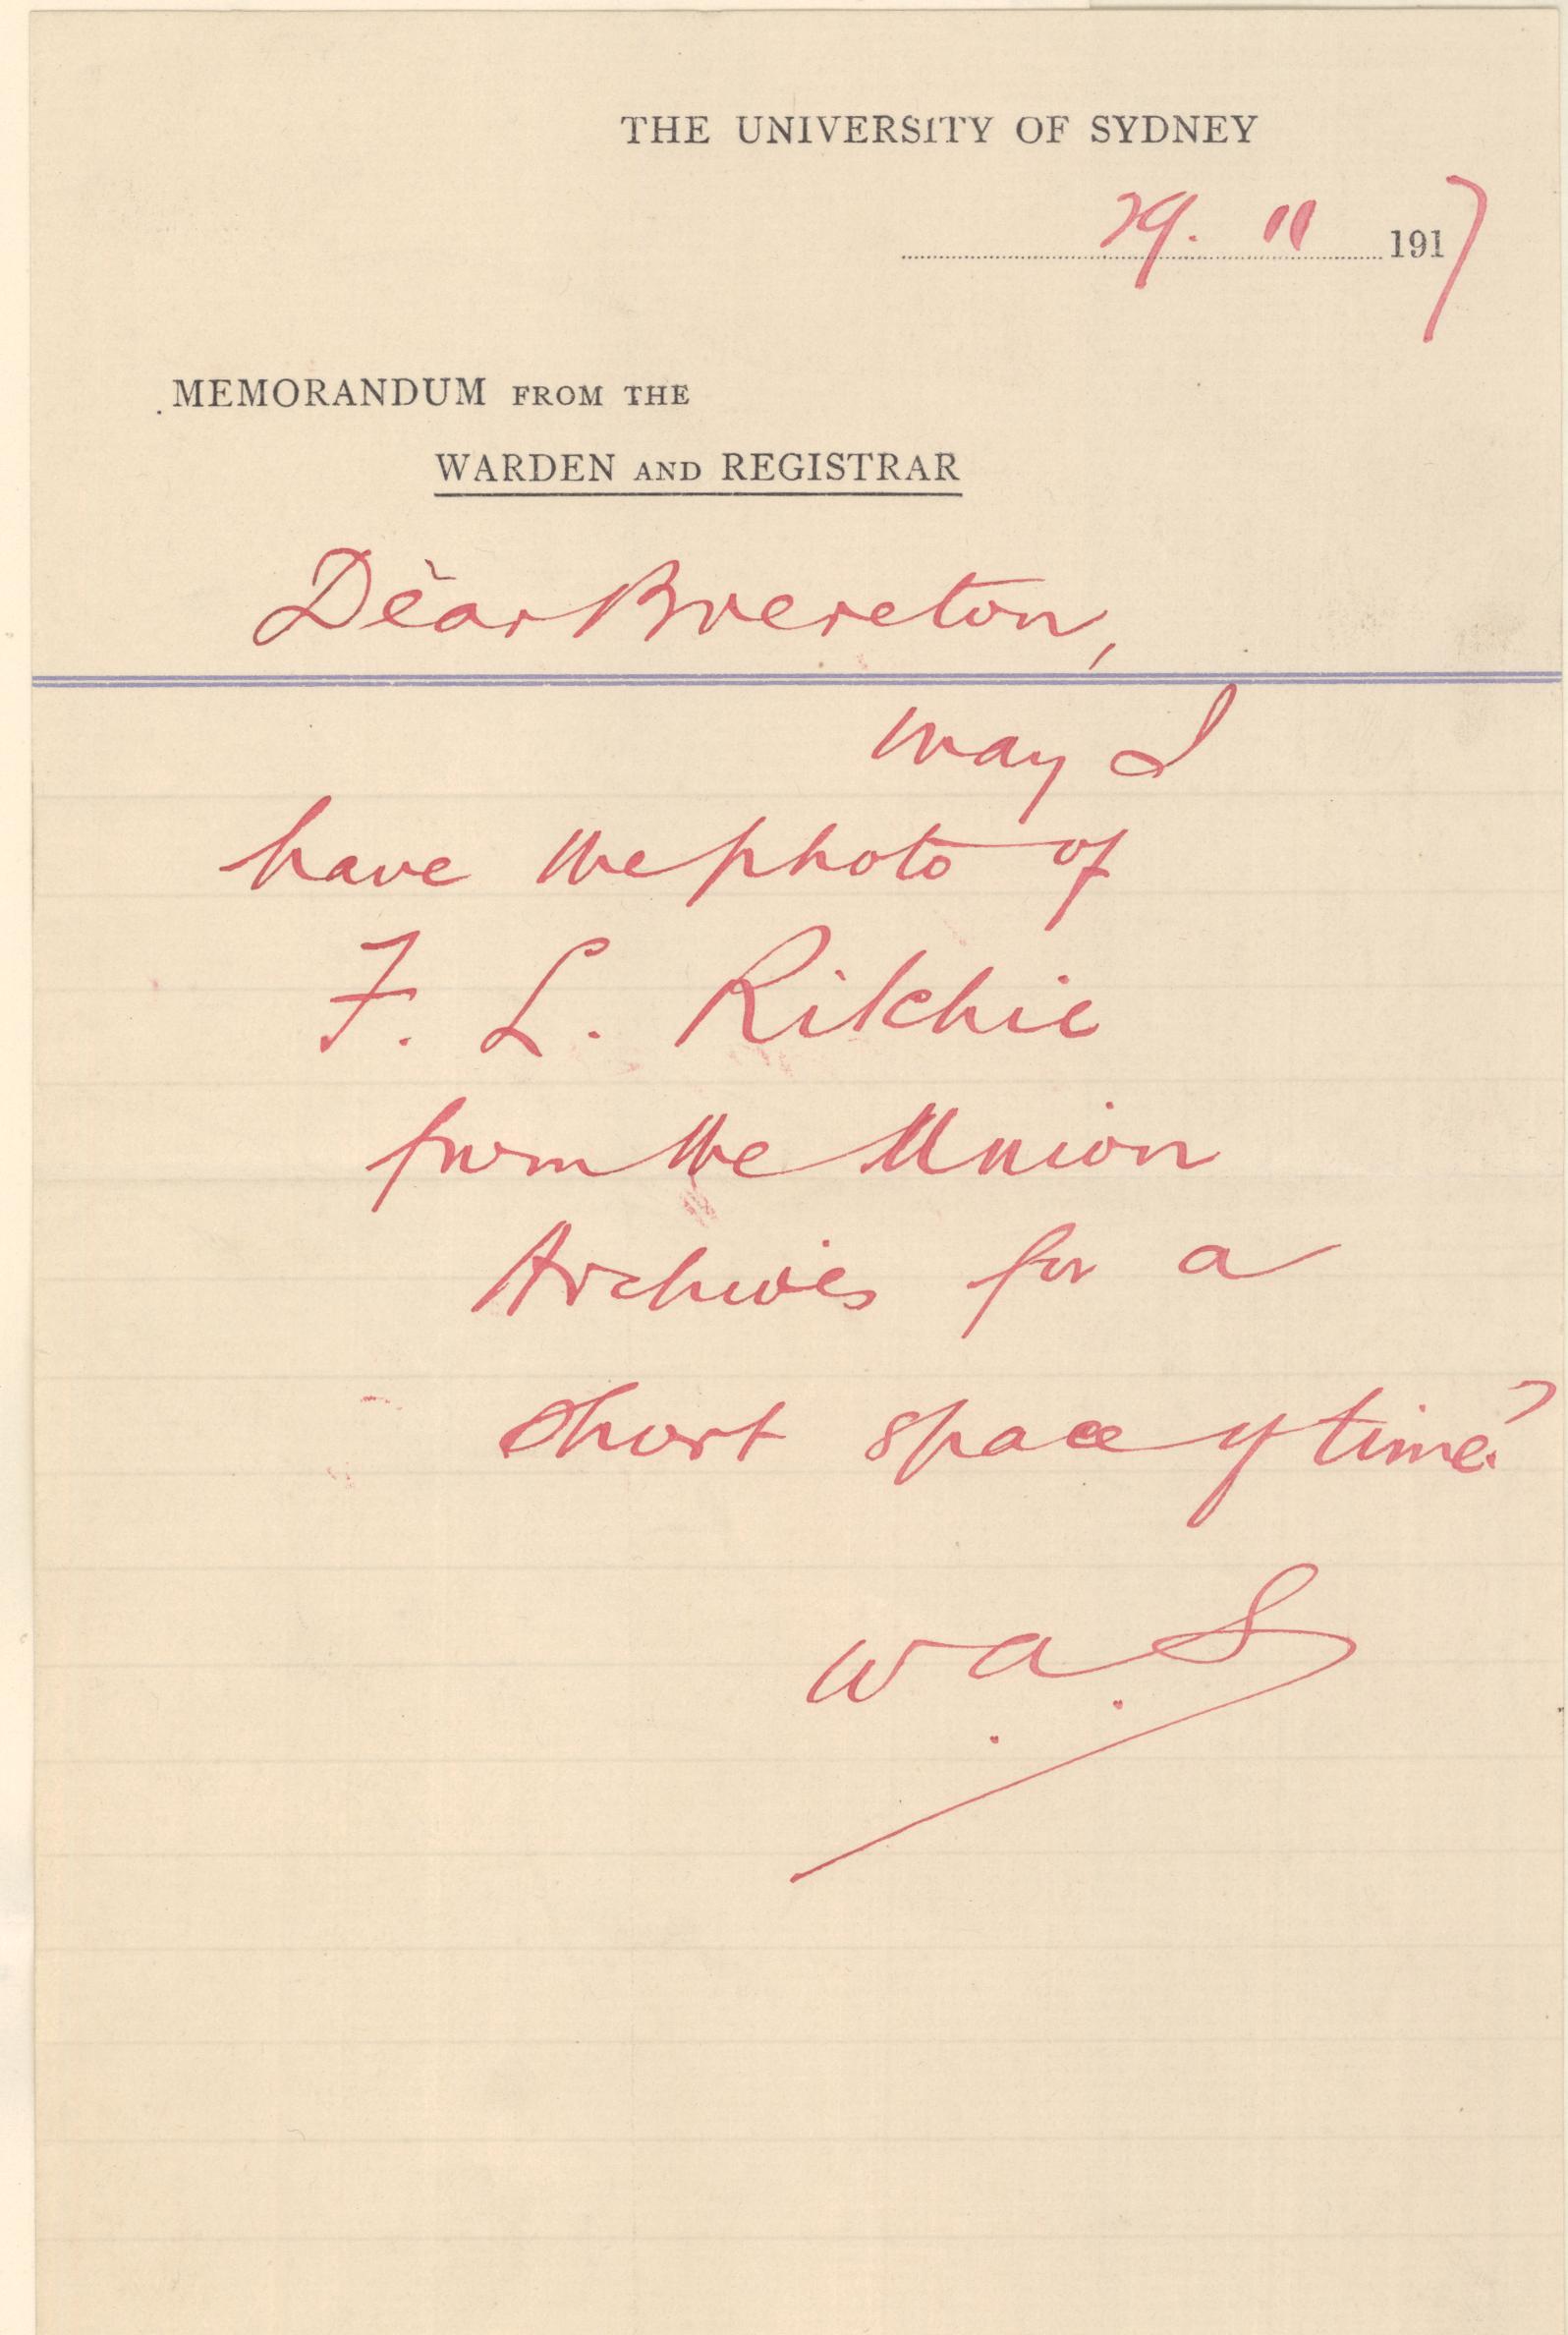 THE UNIVERSITY OF SYDNEY
29. 11 1917
MEMORANDUM FROM THE
WARDEN AND REGISTRAR
Dear Brereton,
May I
have the photo of
F. L. Ritchie
from the Union
Archives for a
short space of time?
W. A. S